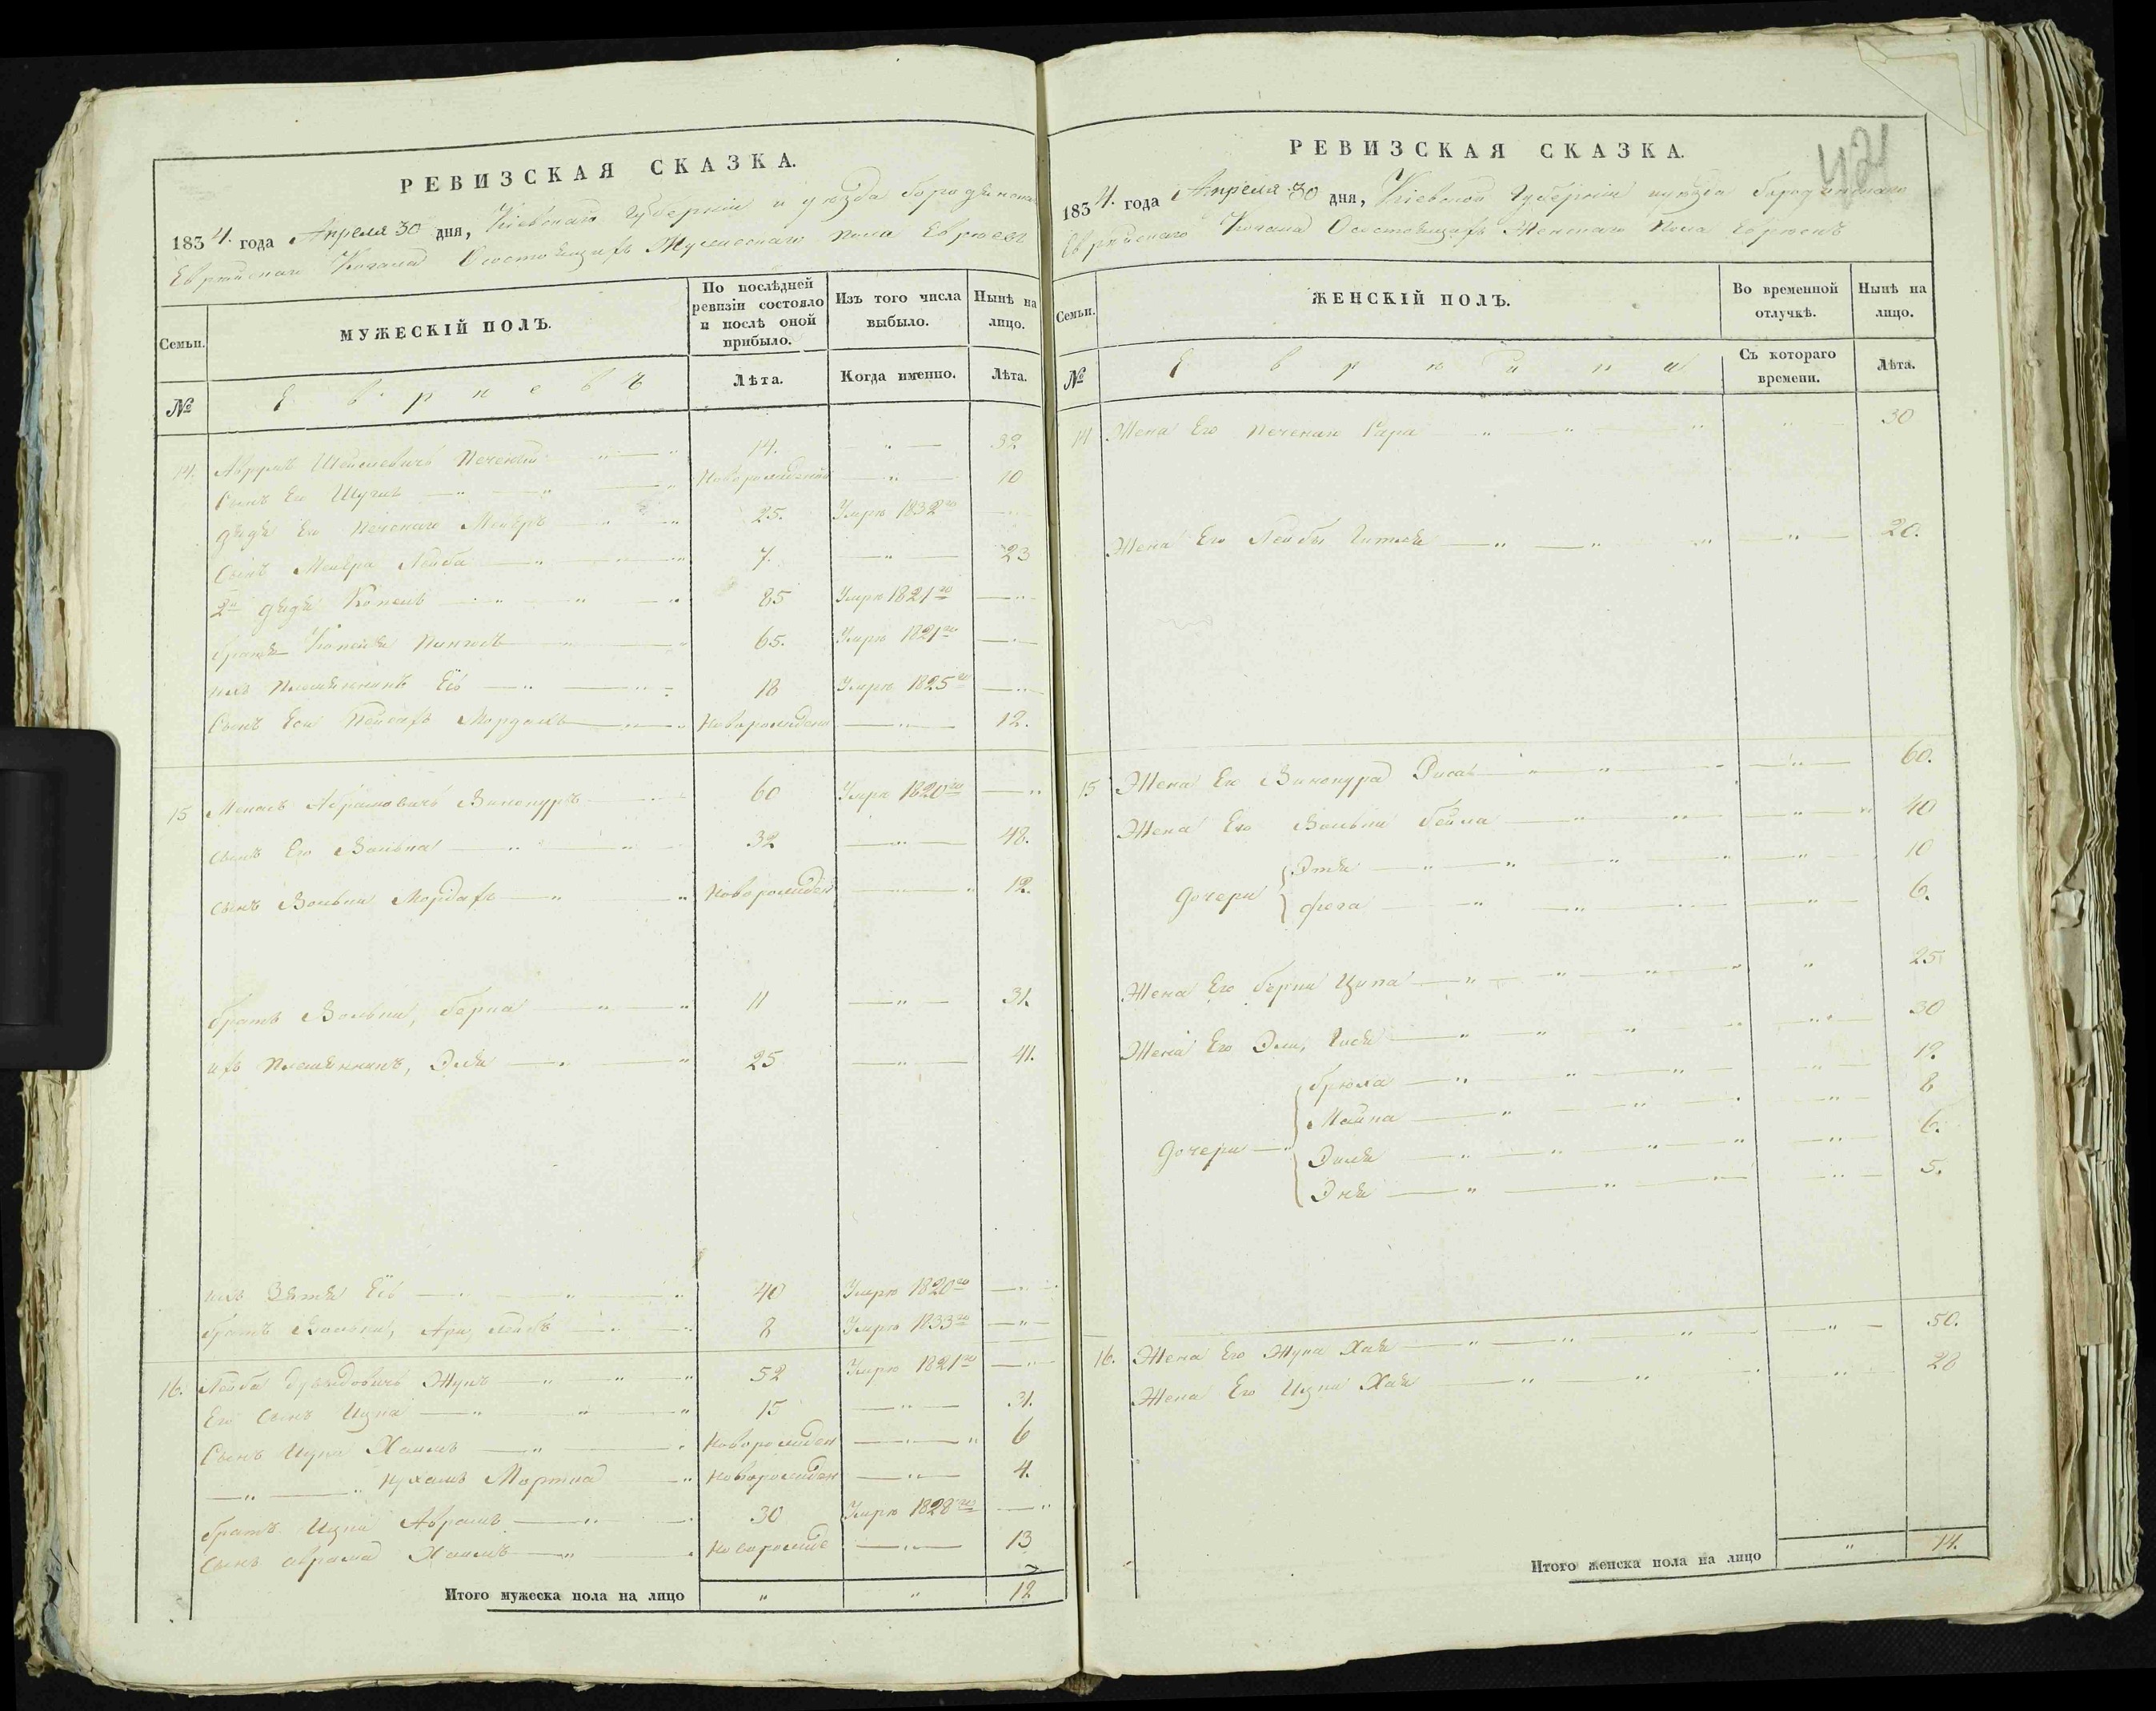 РЕВИЗСКАЯ СКАЗКА.
1834. года Апреля 30 дня, Кіевской Губерніи и уезда бородянскаго
Еврейскаго Кагала О состоящихъ Мужескаго пола Евреевъ
Семьи.
МУЖЕСКІЙ ПОЛЪ.
По послѣдней ревизіи состояло и послѣ оной прибыло.
Изъ того числа выбыло.
Нынѣ на лицо.
№
Евреевъ
Лѣта.
Когда именно.
Лѣта.
14. Аврумъ Печеный 14. 32
Сынъ Его Новорожденый 10
дядя Его Печенаго Меиеръ 25. Умре 1832го
Сынъ Меиера Лейба 7. 23
2й дядя Копель 85 Умре 1821го
братъ Копеля Пинхосъ 65. Умре 1821го
ихъ Племянникъ Есь 18 Умре 1825го
Сынъ Еси Пейсахъ Мордхъ Новорожден 12.
15 Менаъ Абрамовичъ Винокуръ 60 Умре 1820го
сынъ Его Волька 32 48.
сынъ Вольки Мордахъ Новорожден 12.
братъ Вольки, берка 11 31.
ихъ Племянникъ, Эля 25 41.
ихъ Зятя Есь 40 Умре 1820го
братъ Вольки, Арн Лейбъ 8 Умре 1833го
16. Лейба Жукъ 52 Умре 1821го
Его Сынъ Ицка 15 31.
Сынъ Ицки Хаимъ Новорожден 6
Нухамъ Мортка Новорожден 4.
братъ Ицки Абрамъ 30 Умре 1828го
сынъ абрама Хаимъ Новорожде 13
Итого мужеска пола на лицо " " 12
РЕВИЗСКАЯ СКАЗКА.
421
1834. года Апреля 30 дня, Кіевской Губерніи и уезда бородянскаго
Еврейскаго Кагала О состоящихъ Женскаго Пола Евреекъ
Семьи.
ЖЕНСКІЙ ПОЛЪ.
Во временной отлучкѣ.
Нынѣ на лицо.
№
Еврейки
Съ котораго времени.
Лѣта.
14 Жена Его Печенаго 30
Жена Его Лейбы Гитля 20.
15 Жена Его Винокура Риса 60.
Жена Его Вольки бейла 40
дочери Этя 10
фега 6.
Жена Его берки Ципа 25
Жена Его Эли, Гися 30
дочери брюха 12
Малка 8
Эля 6.
Энія 5.
16. Жена Его Жука Хая 50.
Жена Его Ицки Хая 28
Итого женска пола на лицо " 14.